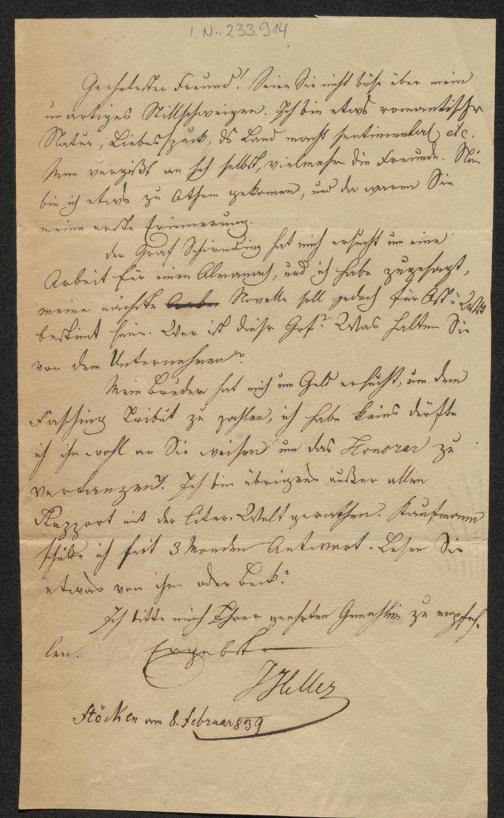 I N. 233.914
Geehrtester Freund! Seien Sie nicht böse über mein
unartiges Stillschweigen. Ich bin etwas romantischer
Natur, Liebes, das Land macht sentimental, etc.
Man vergißt an sich selbst, vielmehr die Freunde. Nun
bin ich etwas zu Athem gekommen, und da waren Sie
meine erste Erinnerung.
Der Graf Schirnding hat mich ersucht um eine
Arbeit für einen Almanach, und ich habe zugesagt,
meine nächste Novelle soll jedoch für Ost u West
bestimt sein. Wer ist dieser Graf? Was halten Sie
von dem Unternehmen?
Mein Bruder hat mich um Geld ersucht, um dem
Fasching Tribut zu zahlen, ich habe keins dürfte
ich ihn wohl an Sie weisen um das Honorar zu
verlangen? Ich bin übrigens außer allen
Rapport mit der liter. Welt gerathen. Kaufmann
schulde ich seit 3 Monden Antwort. Lesen Sie
etwas von ihm oder Beck?
Ich bitte mich Ihrer geehrten Gemahlin zu empfeh-
len. Ergebst
Heller
Stöcken am 8. Februar 839